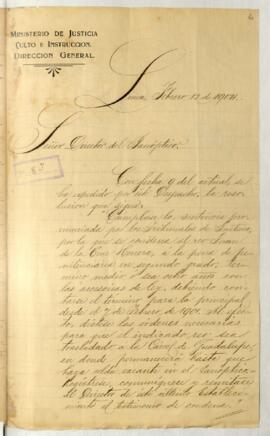 MINISTERIO DE JUSTICIA
CULTO É INSTRUCCION.
DIRECCION GENERAL.
Lima, Febrero 13 de 1904.
Señor Director del Panóptico.
Con fecha 9 del actual se
ha expedido por este Despacho, la reso-
lucion que sigue:
"Cúmplase la sentencia pro-
nunciada por los Tribunales de Justicia,
por la que se condena al reo Juan
de la Cruz Moreno, á la pena de pe-
nitenciaría en segundo grado, tér-
mino medio, ó sea ocho años con
las accesorias de ley, debiendo con-
tarse el término para la principal
desde el 7 de Febrero de 1900. Al efec-
to, díctese las ordenes necesarias
para que el indicado reo sea
trasladado á la Carcel de Guadalupe,
en donde permanecerá hasta que
haya celda vacante en el Panóptico.
Regístrese, comuníquese y remítase
al Director de este último Estableci-
miento el testimonio de condena.